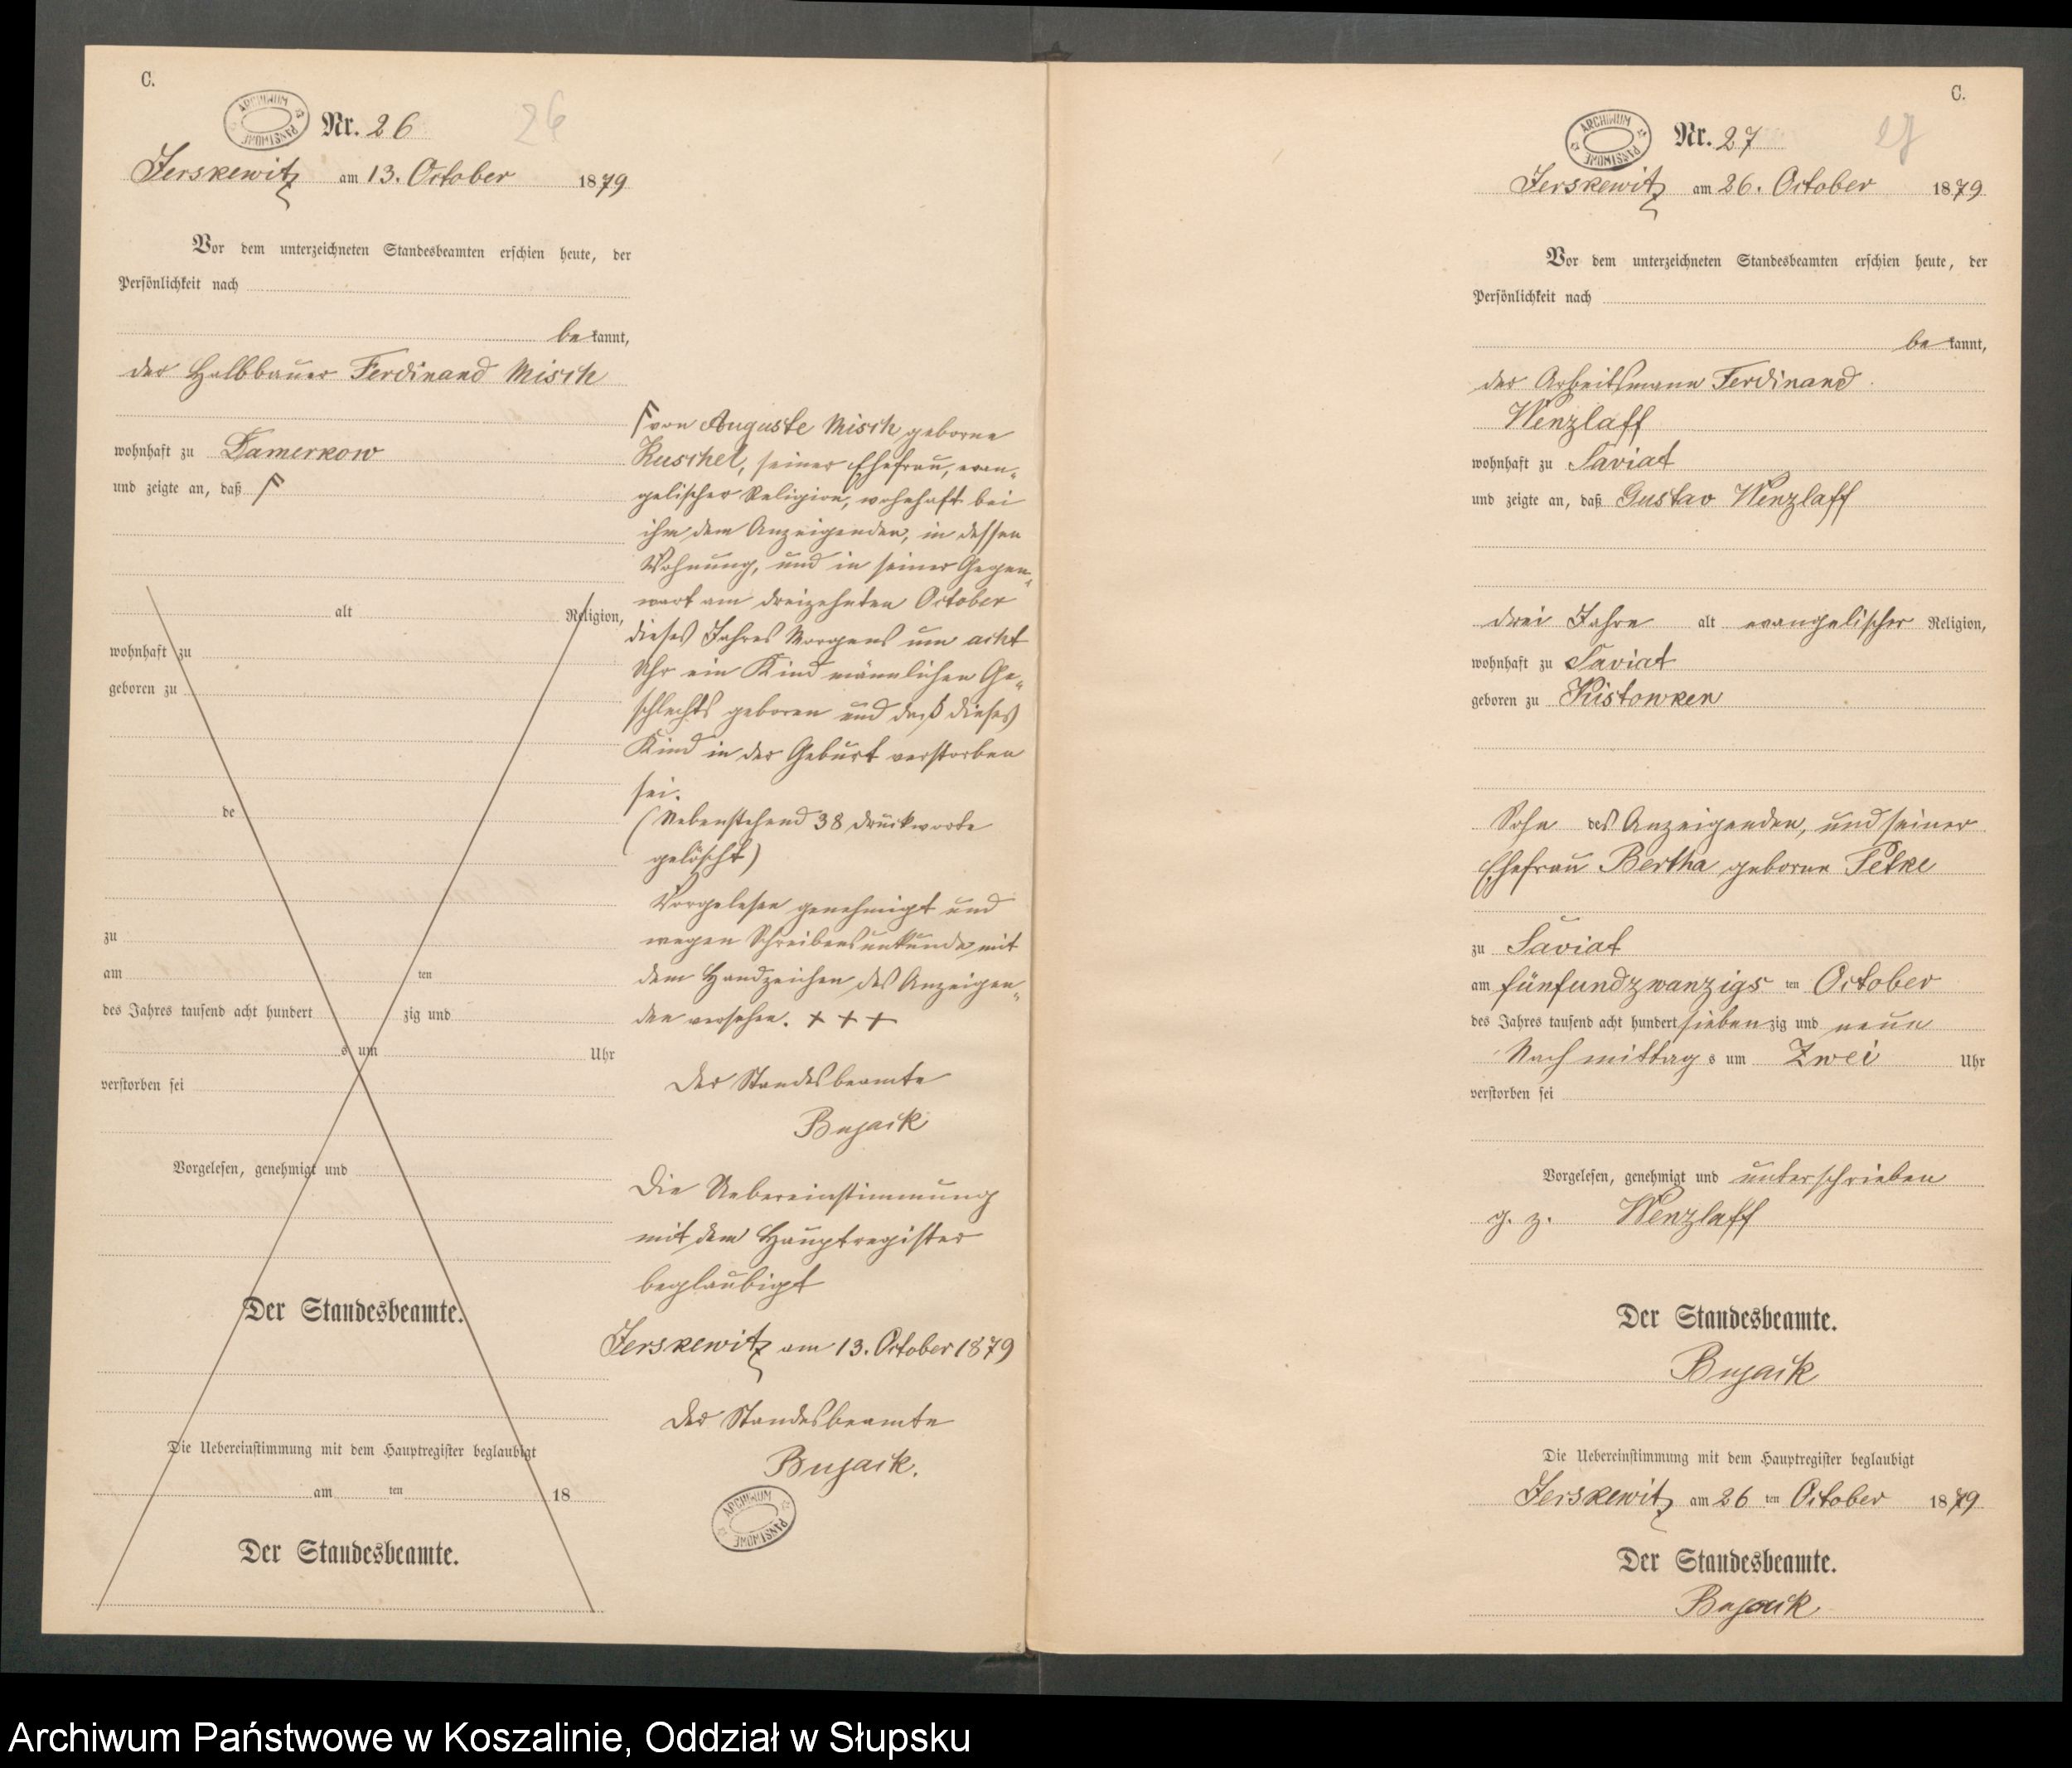 C.
ARCHIWUM PAŃSTWOWE
Nr. 26
26
Jerskewitz am 13. October 1879
Vor dem unterzeichneten Standesbeamten erschien heute, der
Persönlichkeit nach
bekannt,
der Halbbauer Ferdinand Misch
wohnhaft zu Damerkow
und zeigte an, daß F
alt Religion,
wohnhaft zu
geboren zu
de
zu
am ten
des Jahres tausend acht hundert zig und
s um Uhr
verstorben sei
Vorgelesen, genehmigt und
Der Standesbeamte.
Die Uebereinstimmung mit dem Hauptregister beglaubigt
am ten 18
Der Standesbeamte.
F von Auguste Misch geborne
Ruschel, seiner Ehefrau, evan-
gelischer Religion, wohnhaft bei
ihm dem Anzeigenden, in dessen
Wohnung, und in seiner Gegen-
wart am dreizehnten October
dieses Jahres Morgens um acht
Uhr ein Kind männlichen Ge-
schlechts geboren und daß dieses
Kind in der Geburt verstorben
sei.
(Nebenstehend 38 Druckworte
gelöscht)
Vorgelesen genehmigt und
wegen Schreibensunkunde mit
dem Handzeichen des Anzeigen-
den versehen. + + +
Der Standesbeamte
Bujack
Die Uebereinstimmung
mit dem Hauptregister
beglaubigt
Jerskewitz am 13. October 1879
Der Standesbeamte
Bujack.
ARCHIWUM PAŃSTWOWE
C.
ARCHIWUM PAŃSTWOWE
Nr. 27
27
Jerskewitz am 26. October 1879
Vor dem unterzeichneten Standesbeamten erschien heute, der
Persönlichkeit nach
bekannt,
der Arbeitsmann Ferdinand
Wenzlaff
wohnhaft zu Saviat
und zeigte an, daß Gustav Wenzlaff
drei Jahre alt evangelischer Religion,
wohnhaft zu Saviat
geboren zu Kistowken
Sohn des Anzeigenden, und seiner
Ehefrau Bertha geborne Petke
zu Saviat
am fünfundzwanzigsten October
des Jahres tausend acht hundert siebenzig und neun
Nachmittags um Zwei Uhr
verstorben sei
Vorgelesen, genehmigt und unterschrieben
g. z. Wenzlaff
Der Standesbeamte.
Bujack
Die Uebereinstimmung mit dem Hauptregister beglaubigt
Jerskewitz am 26 ten October 1879
Der Standesbeamte.
Bujack
Archiwum Państwowe w Koszalinie, Oddział w Słupsku